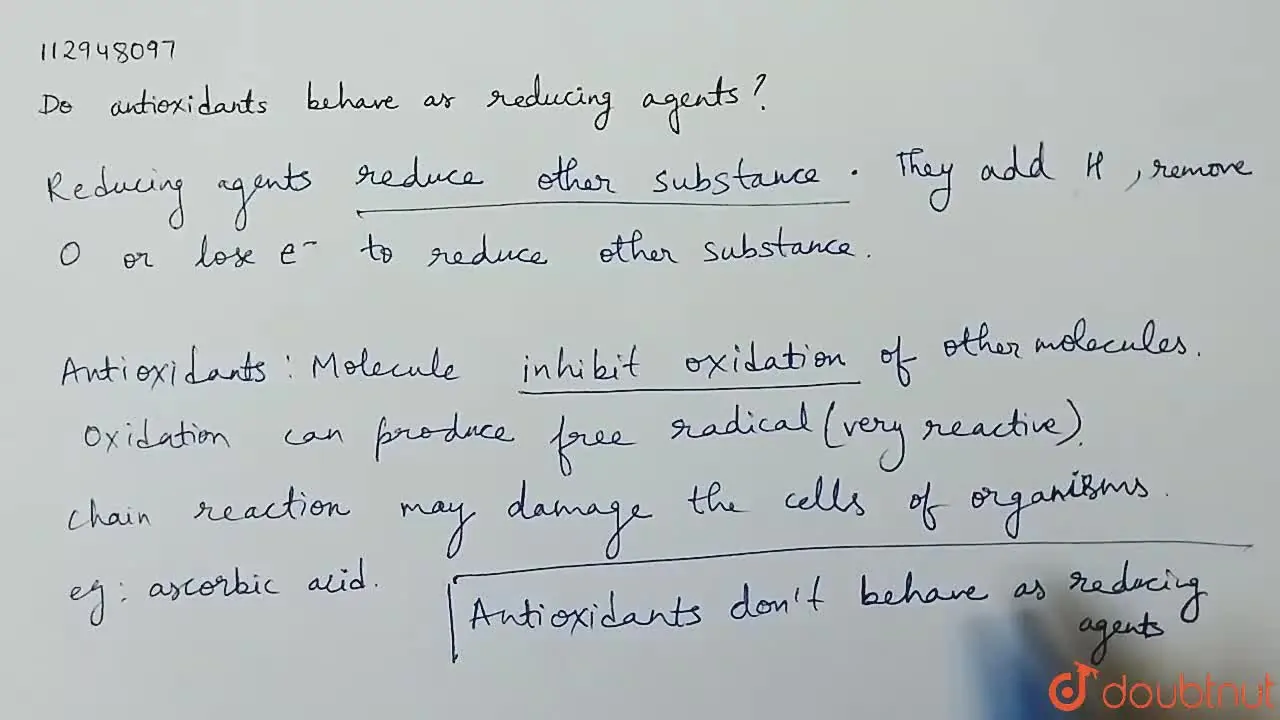 112948097
Do antioxidants behave as reducing agents?
Reducing agents reduce other substance. They add H, remove
O or lose e⁻ to reduce other substance.
Antioxidants: Molecule inhibit oxidation of other molecules.
Oxidation can produce free radical (very reactive).
Chain reaction may damage the cells of organisms.
eg: ascorbic acid.
Antioxidants don't behave as reducing
agents
doubtnut